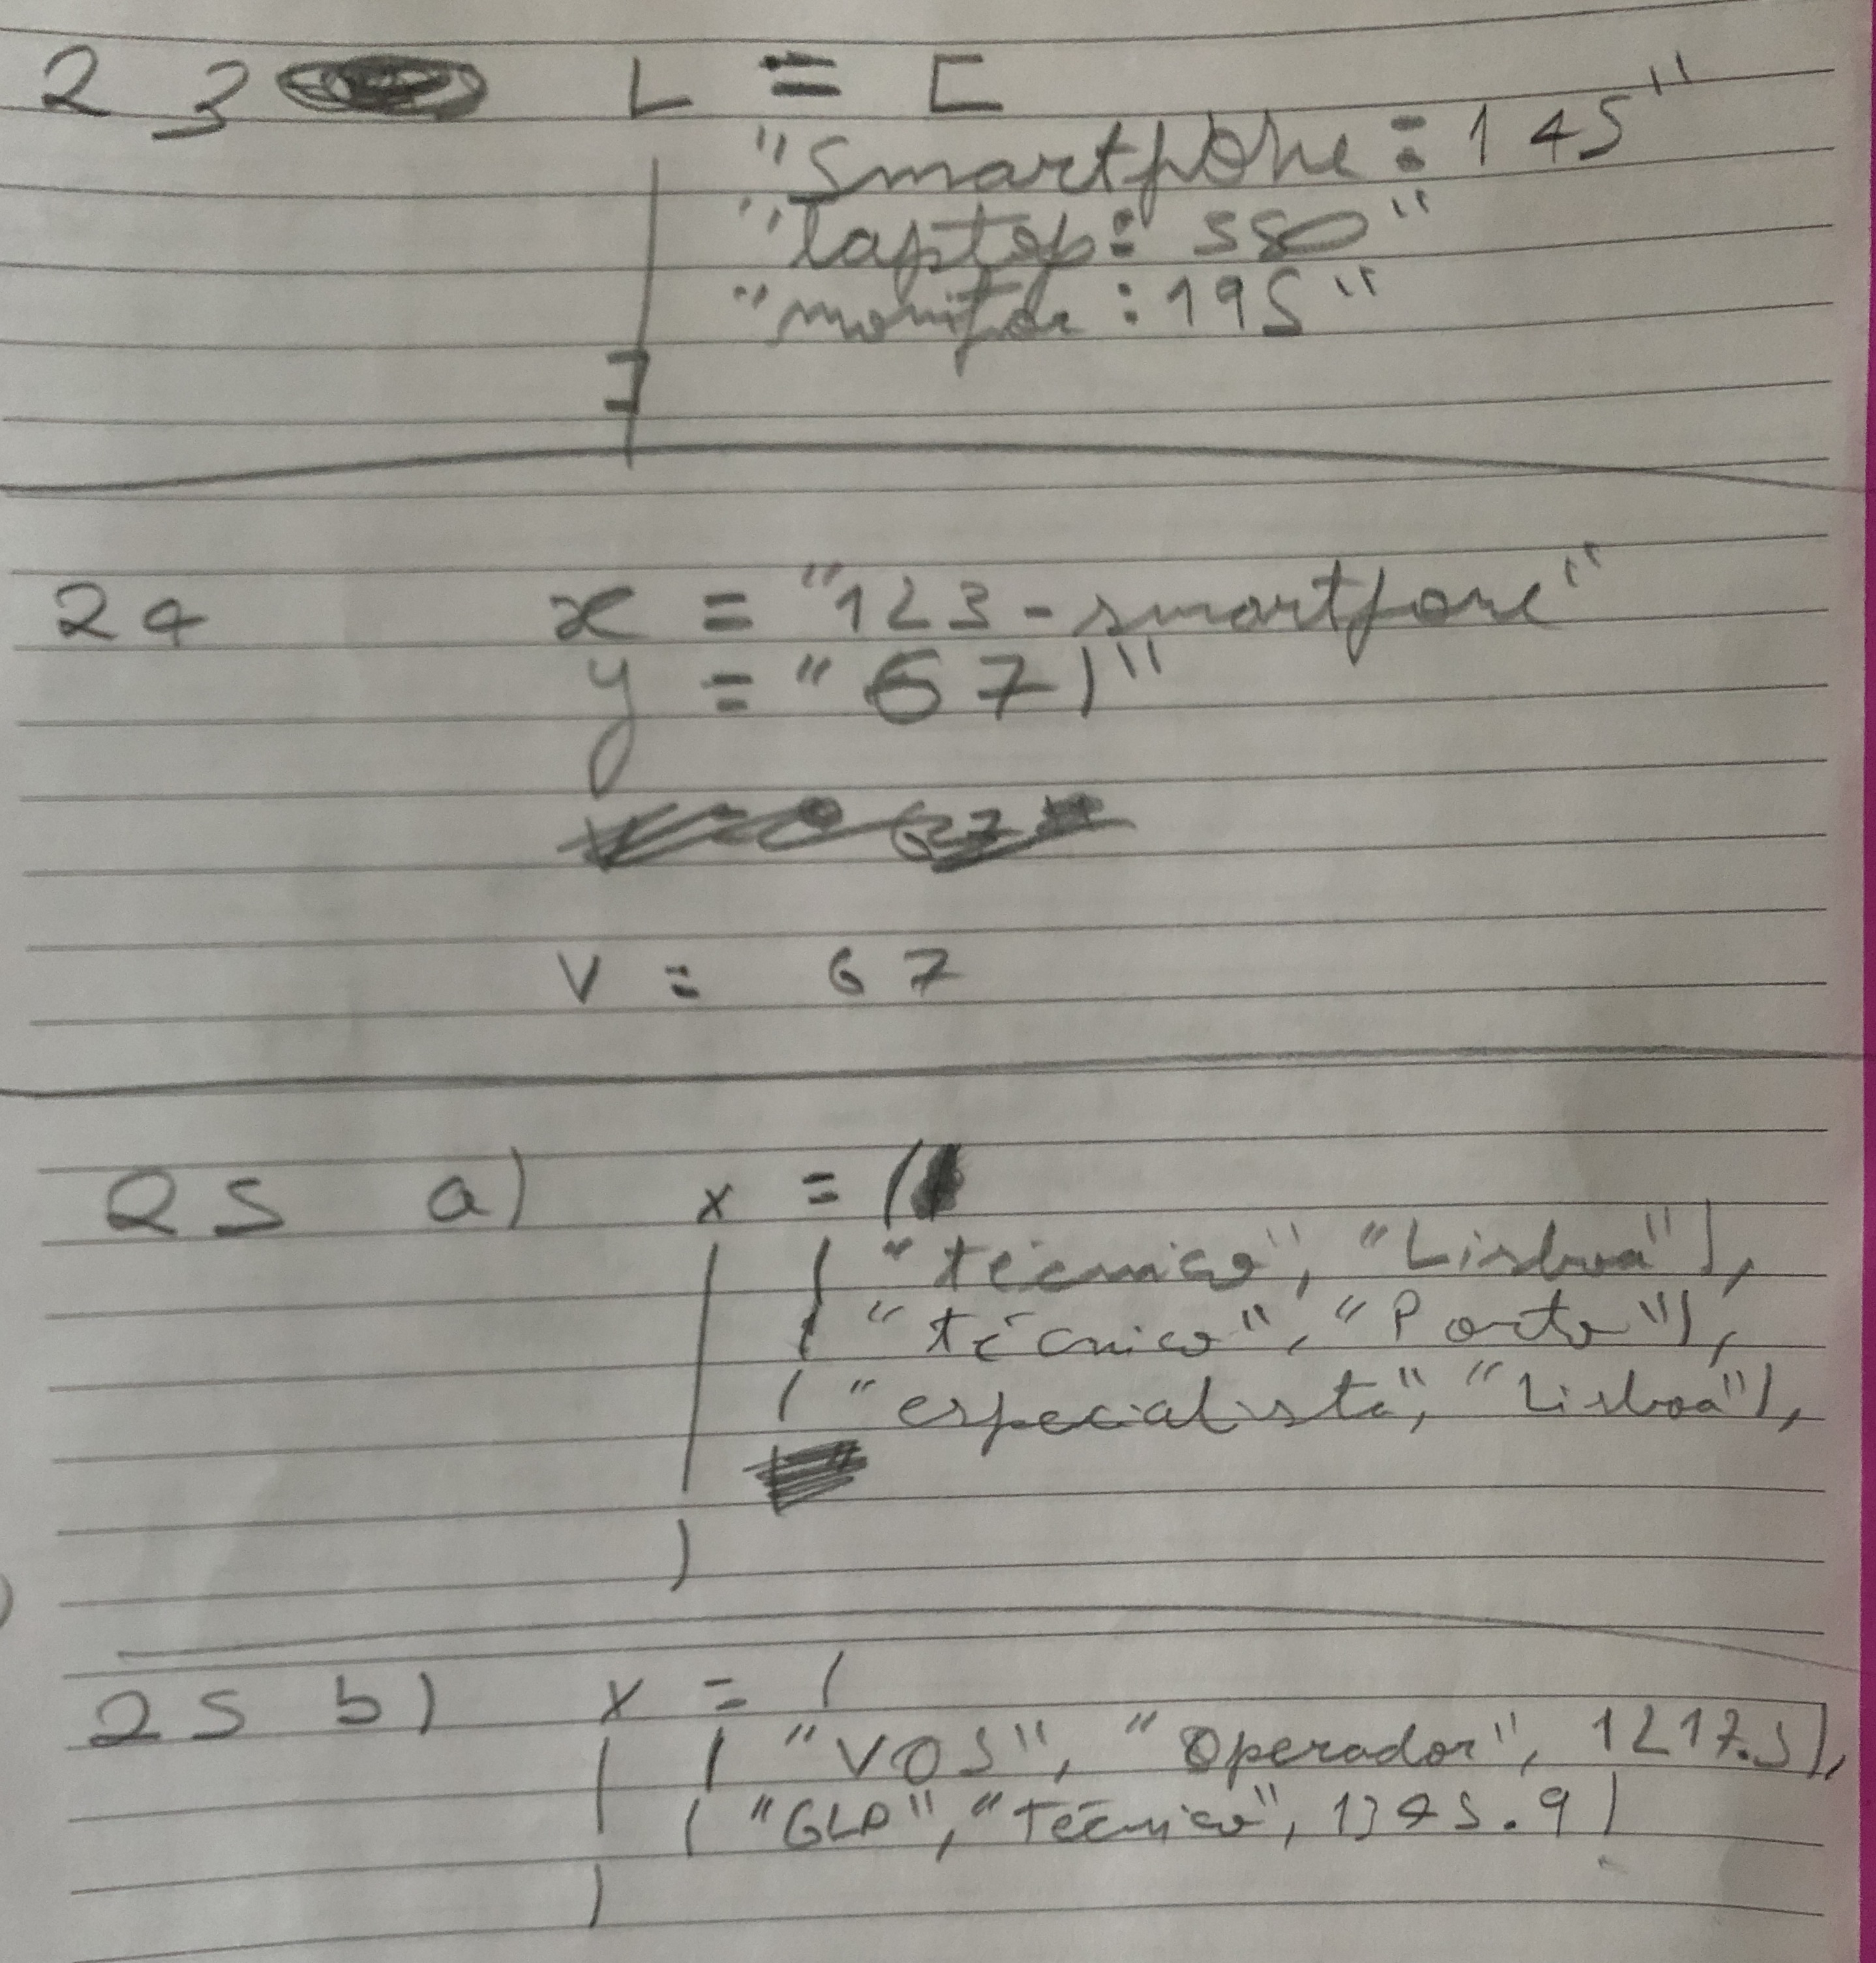 23 L = [
"Smartphone: 145"
"laptop: 550"
"monitor: 195"
]
24 x = "123-smartfone"
y = "671"
v = 67
25 a) x = (
("técnico", "Lisboa"),
("técnico", "Porto"),
("especialista", "Lisboa"),
)
25 b) x = (
("VOS", "Operador", 1217.5),
("GLP", "Técnico", 1345.9)
)